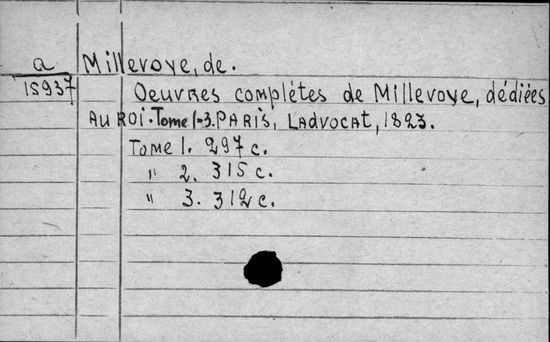 a Millevoye, de.
15937
Oeuvres complétes de Millevoye, dédiées
au Roi. Tome 1-3. Paris, Ladvocat, 1823.
Tome 1. 297 c.
" 2. 315 c.
" 3. 312 c.